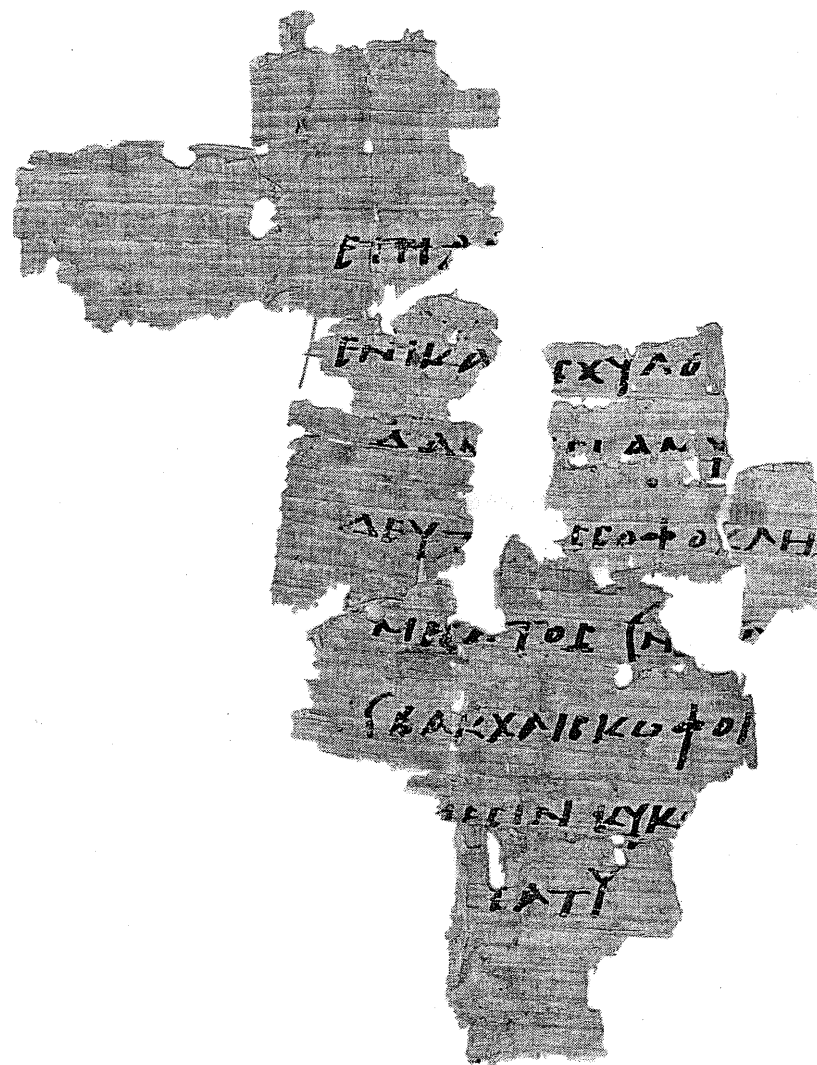 ΕΠΙ ΑΡ
ΕΝΙΚΑ ϹΧΥΛΟ
ΔΑΝ ϹΙ ΑΜΥ
ΔΕΥΤ ϹϹΟΦΟΚΛΗ
ΜΕϹΑΤΟϹ (Ν
(ΒΑΚΧΑΙϹ ΚΩΦΟΙ
ΜΕϹΙΝ ΚΥΚ
ϹΑΤΥ